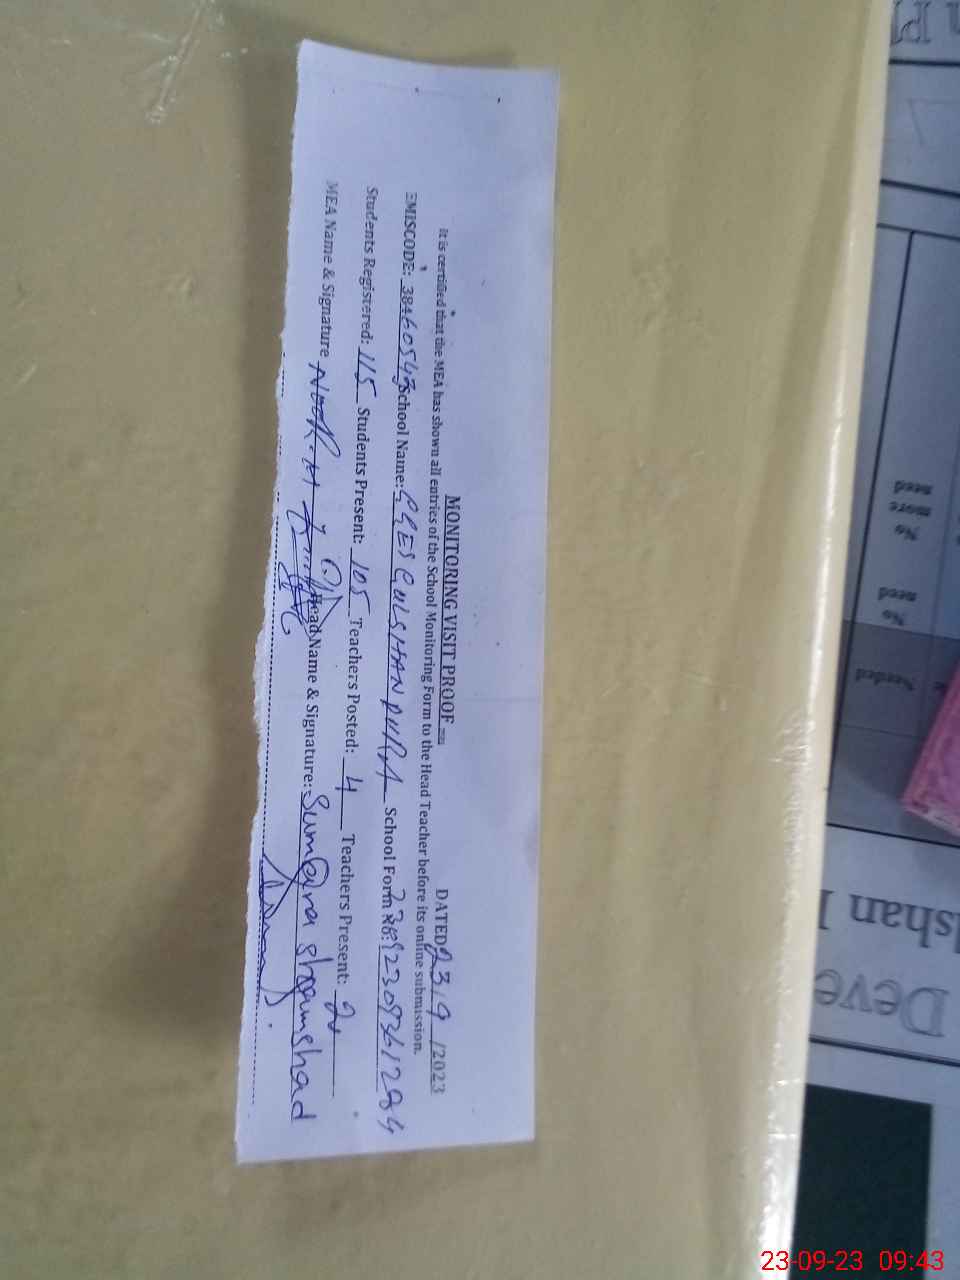 MONITORING VISIT PROOF
DATED 23/9/2023
It is certified that the MEA has shown all entries of the School Monitoring Form to the Head Teacher before its online submission.
EMISCODE: 38460545 School Name: GGES GULSHAN PURA School Form #:
Students Registered: 115 Students Present: 105 Teachers Posted: 4 Teachers Present: 2
MEA Name & Signature NOOR. M Head Name & Signature: Sumaira
No
more
need
No
need
Needed
lshan
Deve
23-09-23 09:43